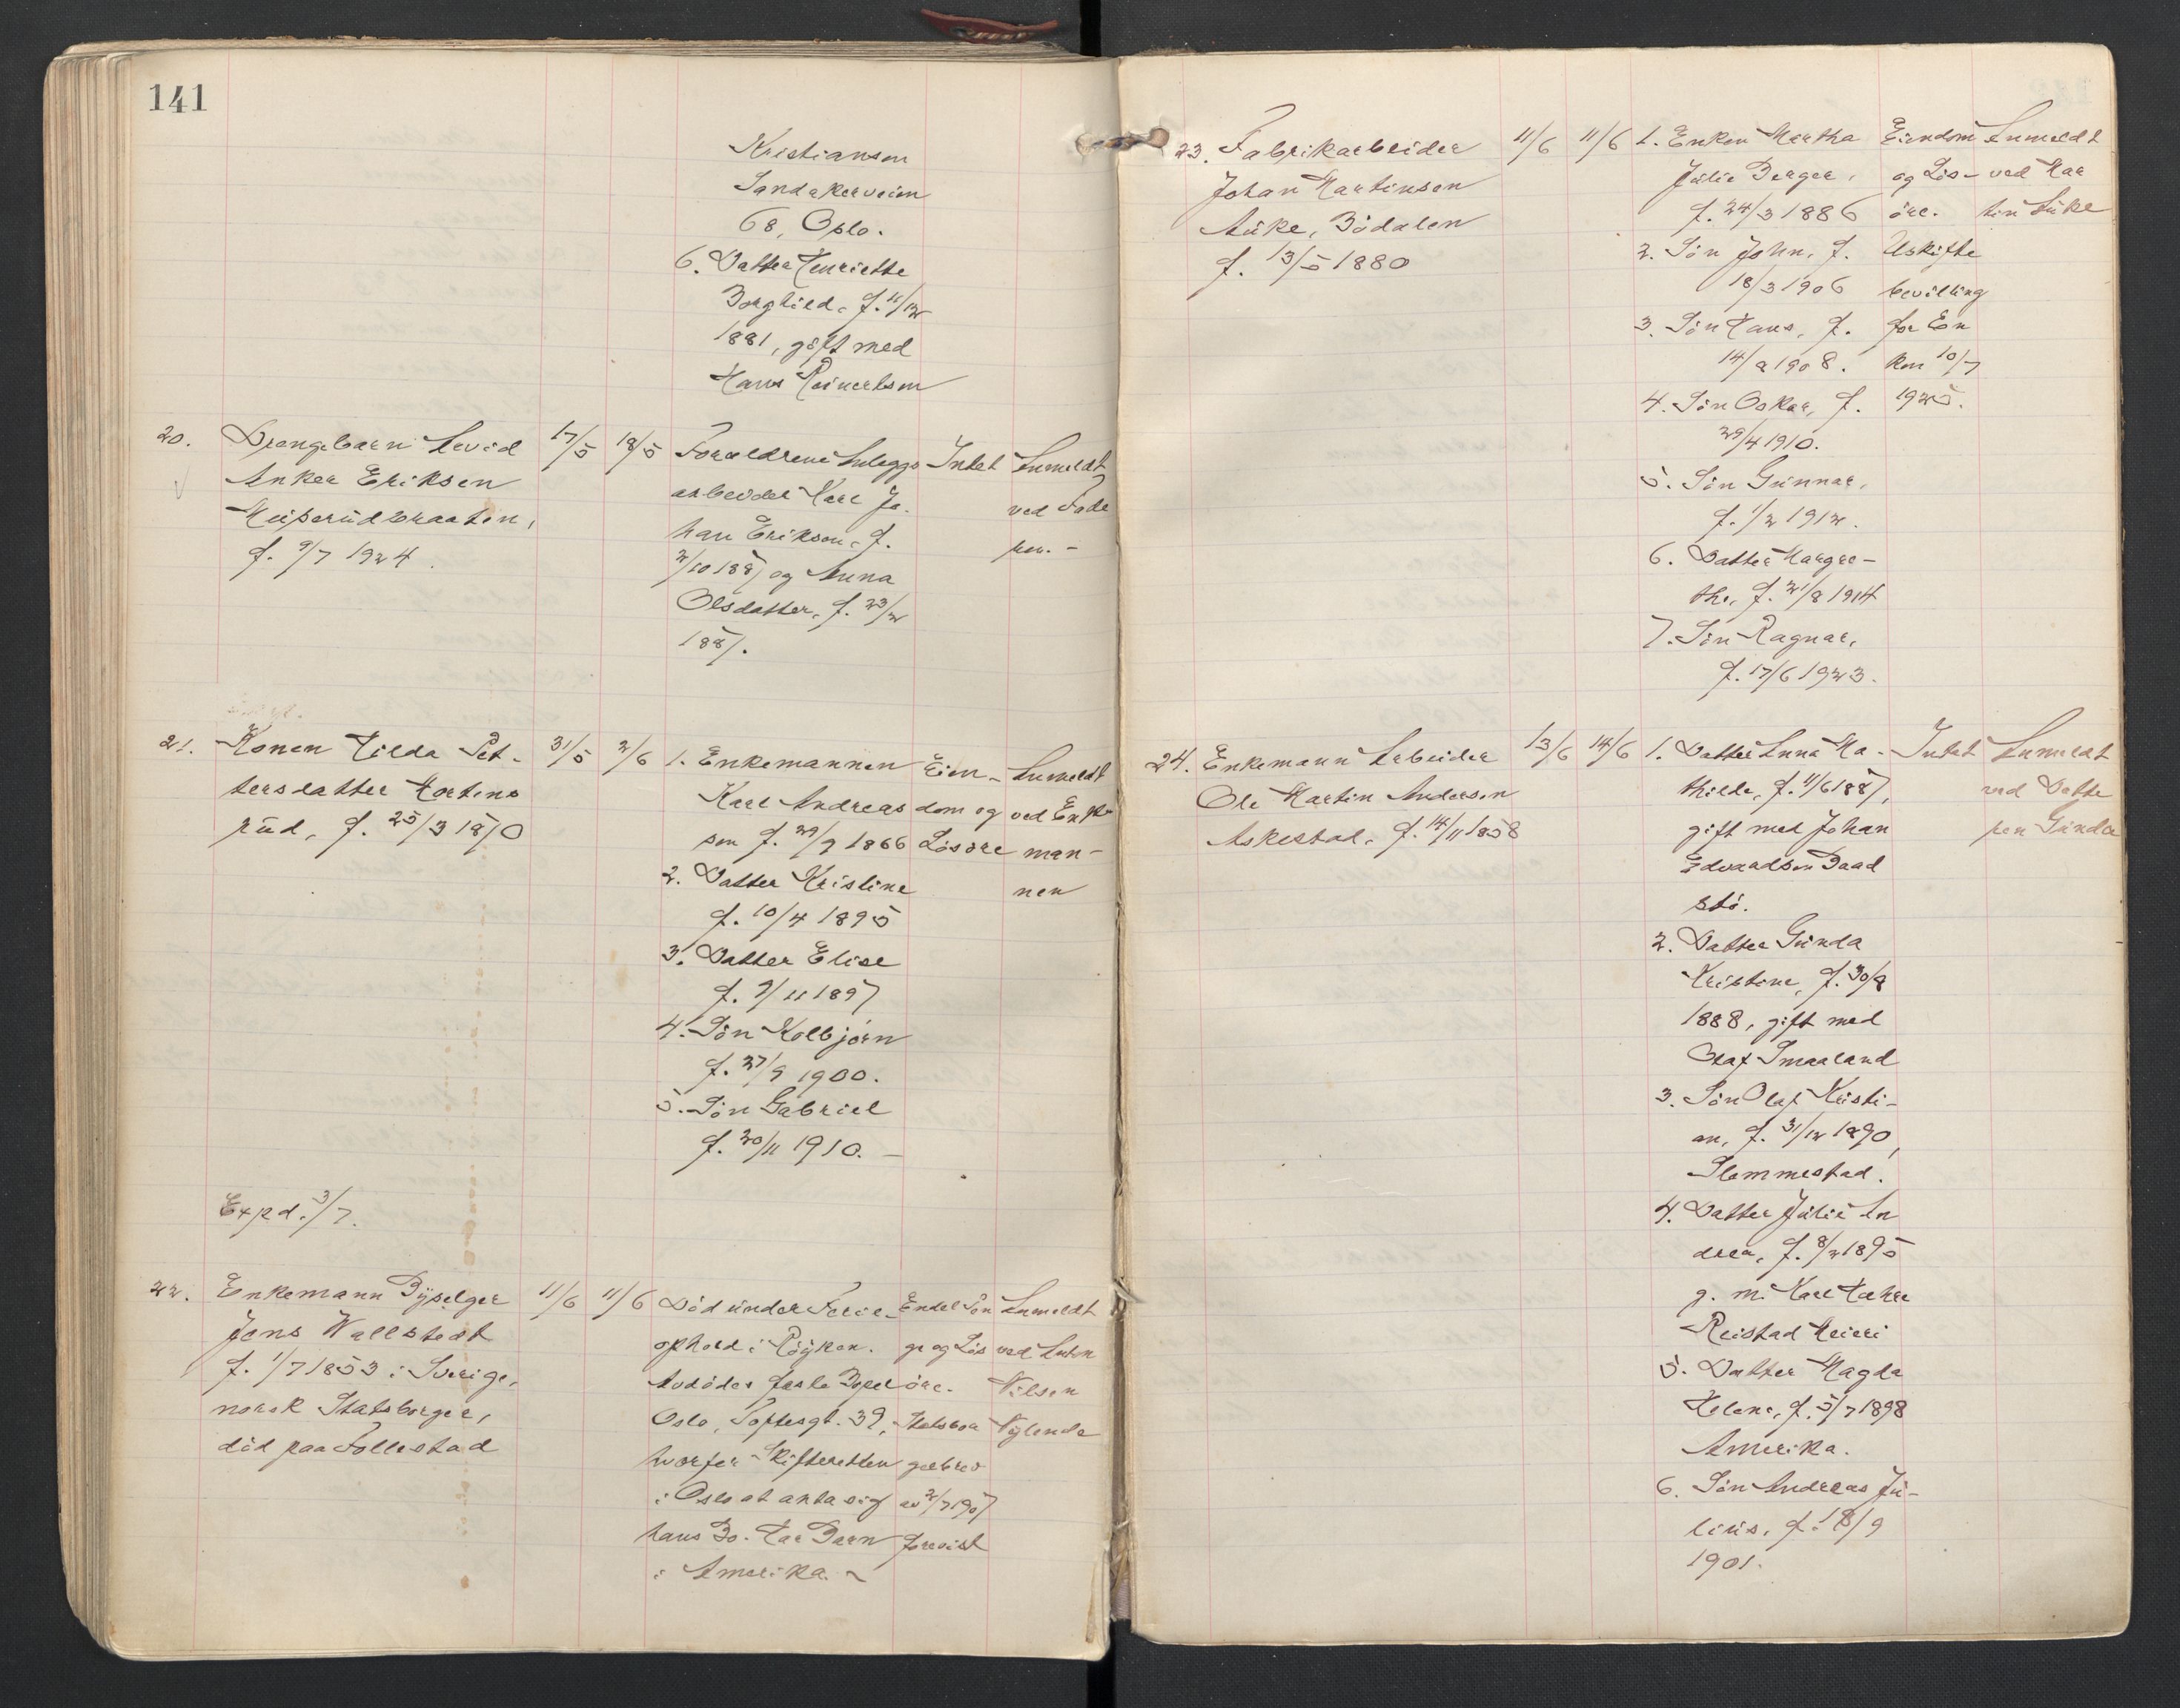 141
Kristiansen
Sandakerveien
68, Oslo.
6. Datter Henriette
Borghild, f. 11/12
1881, gift med
Hans Reinertsen
20. Drengebarn Levid
Anker Eriksen
f. 9/7 1924.
17/5
18/5
Forældrene Anleggs
arbeider Karl Jo-
han Eriksen, f.
2/10 1887 og Anna
Olsdatter, f. 23/2
1887.
Intet
Anmeldt
ved Fade
ren. -
21. Konen Hilda Pet-
tersdatter Hortens
rud, f. 25/3 1870
31/5
2/6
1. Enkemannen
Karl Andreas
sen f. 29/9 1866
2. Datter Kristine
f. 10/4 1895
3. Datter Elise
f. 9/11 1897
4. Søn Kolbjørn
f. 27/9 1900.
5. Søn Gabriel
f. 20/11 1910. -
Eien-
dom og
Løsøre
Anmeldt
ved Enke
man-
nen
Expd. 3/7.
22. Enkemann Byselger
Jens Wallstedt
f. 1/7 1853 i Sverige,
norsk Statsborger,
död paa Follestad
11/6
11/6
Död under Ferie-
ophold i Röyken.
Avdödes faste Bopel
Oslo, Toftesgt. 39,
hvorfor Skifteretten
i Oslo at anta sig
hans Bo. Har Barn
i Amerika. -
Endel Pen
ge og Løs
öre.
Statsbor
gerbrev
av 2/7 1907
forevist
Anmeldt
ved Anton
Nilsen
Nylende
23. Fabrikarbeider
Johan Martinsen
Auke, Bödalen
f. 13/5 1880
11/6
11/6
1. Enken Martha
Julie Berger,
f. 24/3 1886
2. Sön John, f.
18/3 1906
3. Sön Hans, f.
14/8 1908.
4. Sön Oskar, f.
29/4 1910.
5. Sön Gunnar,
f. 1/2 1912.
6. Datter Margre-
the, f. 21/8 1914
7. Sön Ragnar,
f. 17/6 1923.
Eiendom
og Løs-
öre.
Uskifte
bevilling
for En
ken 10/7
1925.
Anmeldt
ved Mar
tin Auke
24. Enkemann Arbeider
Ole Martin Andersen
Askestad, f. 14/11 1858
13/6
14/6
1. Datter Anna Ma-
thilde, f. 11/6 1887,
gift med Johan
Edvardsen Baad
stö.
2. Datter Gunda
Kristine, f. 30/8
1888, gift med
Olaf Smaaland
3. Sön Olaf Kristi-
an, f. 31/12 1890,
Slemmestad.
4. Datter Julie An
drea, f. 8/2 1895
g. m. Karl
Reistad Meieri
5. Datter Magda
Helene, f. 5/7 1898
Amerika.
6. Sön Andreas Ju-
lius, f. 18/9
1901.
Intet
Anmeldt
ved Datte
ren Gunda